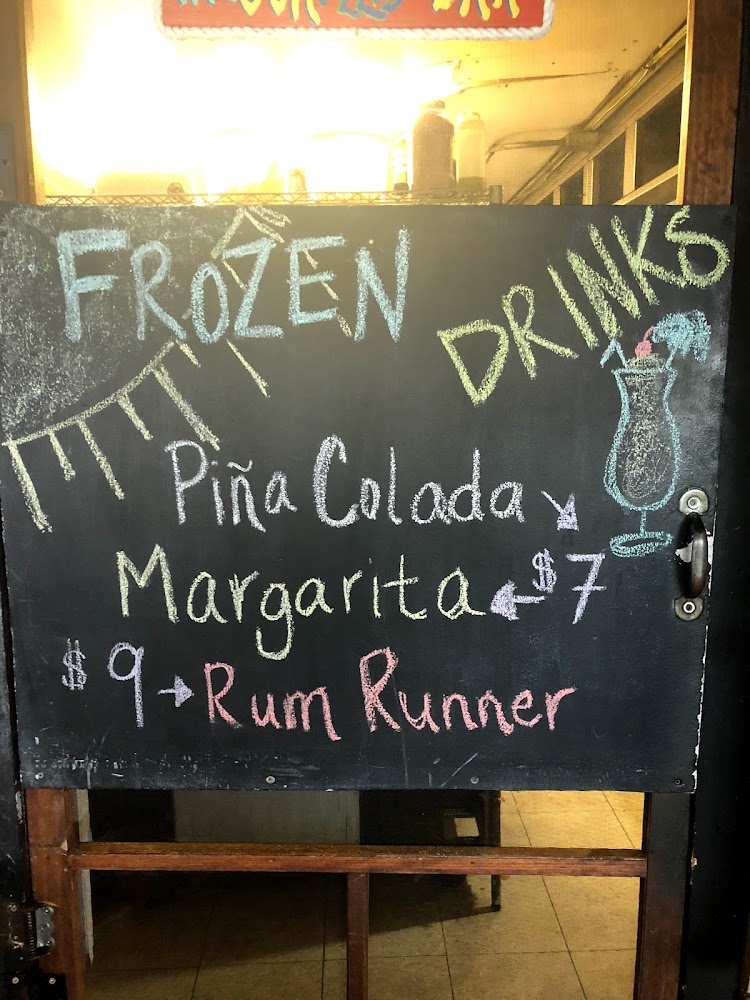 FROZEN
DRINKS
Piña Colada
Margarita $7
$9 Rum Runner